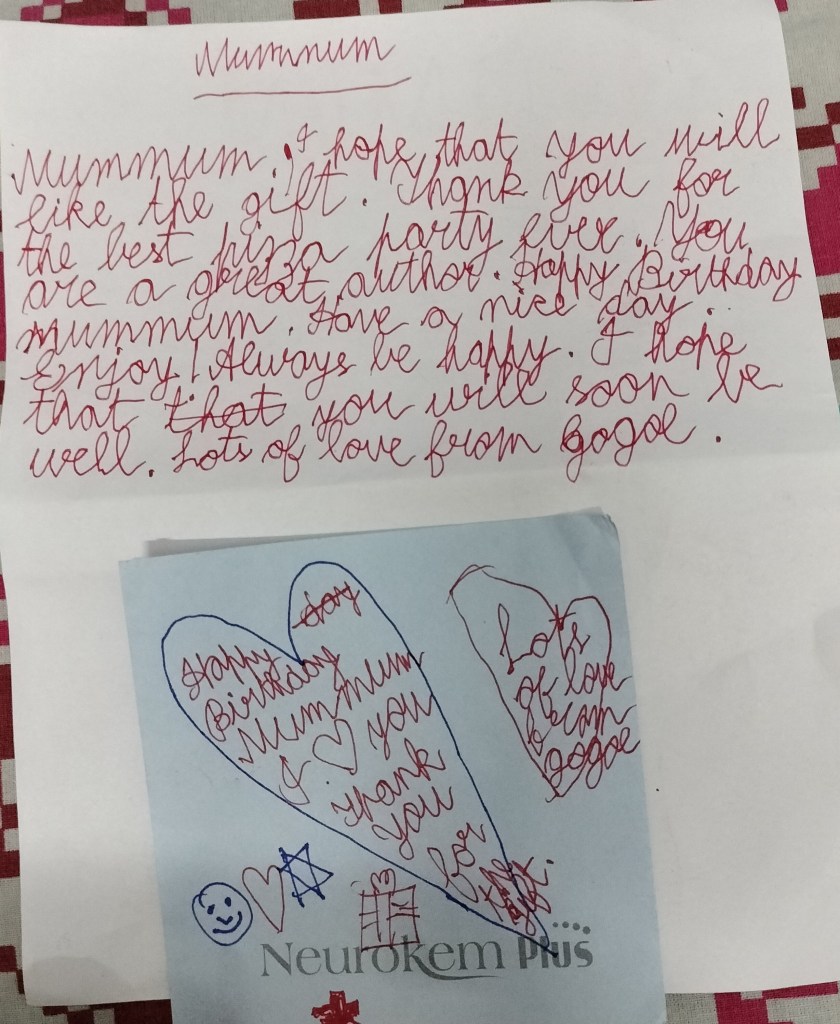 Mummum
Mummum. I hope that you will
like the gift. Thank you for
the best pizza party ever. You
are a great author. Happy Birthday
Mummum. Have a nice day.
Enjoy! Always be happy. I hope
that that you will soon be
well. Lots of love from Gogol.
day
Happy
Birthday
Mummum
I ♡ you
Thank
you
for
the
Lots
of love
from
gogol
Neurokem Plus